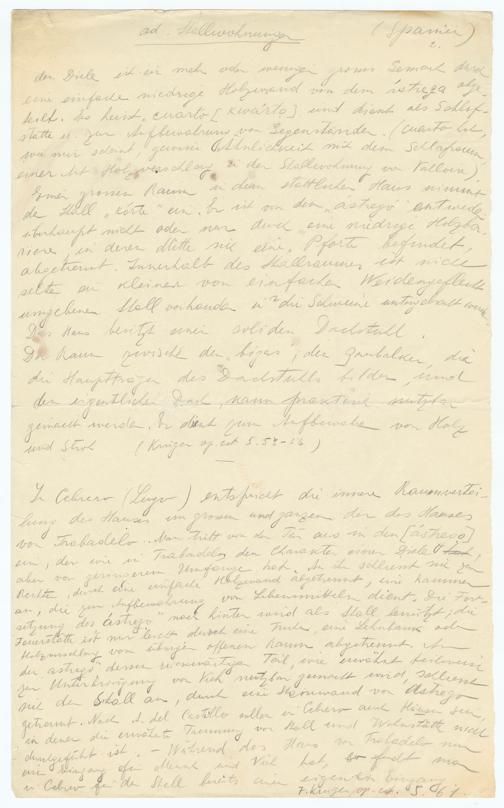 ad. Stallwohnungen (Spanier)
2.
der Diele ist ein mehr oder weniger grosses Gemach durch
eine einfache niedrige Holzwand von dem ástrega abge-
teilt. Es heisst „cuarto [kwárto] und dient als Schlaf-
stätte u. zur Aufbewahrung von Gegenständen. (cuarto hat,
wie mir scheint, gewisse Ähnlichkeit mit dem Schlafraum,
einer Art Holzverschlag in der Stallwohnung von Valloire)
Einen grossen Raum in dem stattlichen Haus nimmt
der Stall „kórte" ein. Er ist von dem „ástrego" entweder
überhaupt nicht oder nur durch eine niedrige Holzba-
riere in deren Mitte sich eine Pforte befindet,
abgetrennt. Innerhalb des Stallraumes ist nicht
selten ein kleiner von einfachen Weidengeflecht
umgebener Stall vorhanden in die Schweine untergebracht
Das Haus besitzt einen soliden Dachstuhl.
Der Raum zwischen den „bigas", den Querbalken, die
die Hauptträger des Dachstuhls bilden, und
dem eigentlichen Dach, kann praktisch nutzbar
gemacht werden. Er dient zum Aufbewahren von Holz
und Stroh (Krüger op. cit. S.
In Cebrero (Lugo) entspricht die innere Raumvertei-
lung des Hauses im grossen und ganzen der des Hauses
von Trabadelo. Man tritt von der Tür aus in den [ástrego]
ein, der wie in Trabadelo den Charakter einer Diele
aber von geringerem Umfange hat. An ihn schliesst sich zur
Rechten, durch eine einfache Holzwand abgetrennt, eine Kammer
an, die zur Aufbewahrung von Lebensmitteln dient. Die Fort-
setzung des ástrego nach hinten wird als Stall benützt; die
Feuerstätte ist nur leicht durch eine Truhe, eine Lehnbank oder
Holzverschlag vom übrigen offenen Raum abgetrennt. An
den astrego, dessen rückwärtiger Teil, wie erwähnt teilweise
zur Unterbringung von Vieh nutzbar gemacht wird, schliesst
sich der Stall an, durch eine Strohwand vom Astrego
getrennt. Nach A. del Castillo sollen in Cebrero auch Häuser sein,
in denen die erwähnte Trennung von Stall und Wohnstätte nicht
durchgeführt ist. – Während das Haus von Trabadelo nur
einen Eingang für Mensch und Vieh hat, so findet man
in Cebrero für den Stall bereits einen eigenen Eingang
F. Krüger, op. cit. S. 61